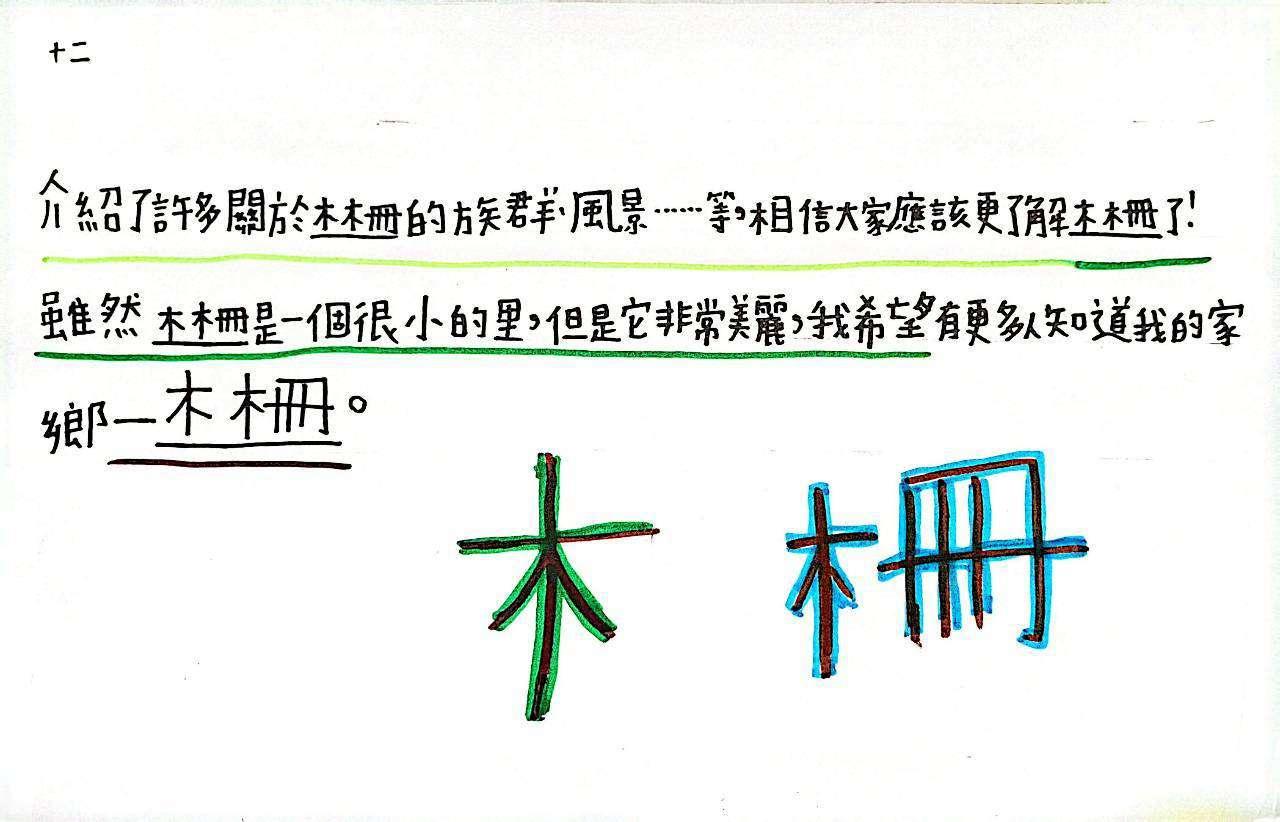 十二
介紹了許多關於木柵的族群、風景……等，相信大家應該更了解木柵了！
雖然木柵是一個很小的里，但是它非常美麗，我希望有更多人知道我的家
鄉—木柵。
木柵